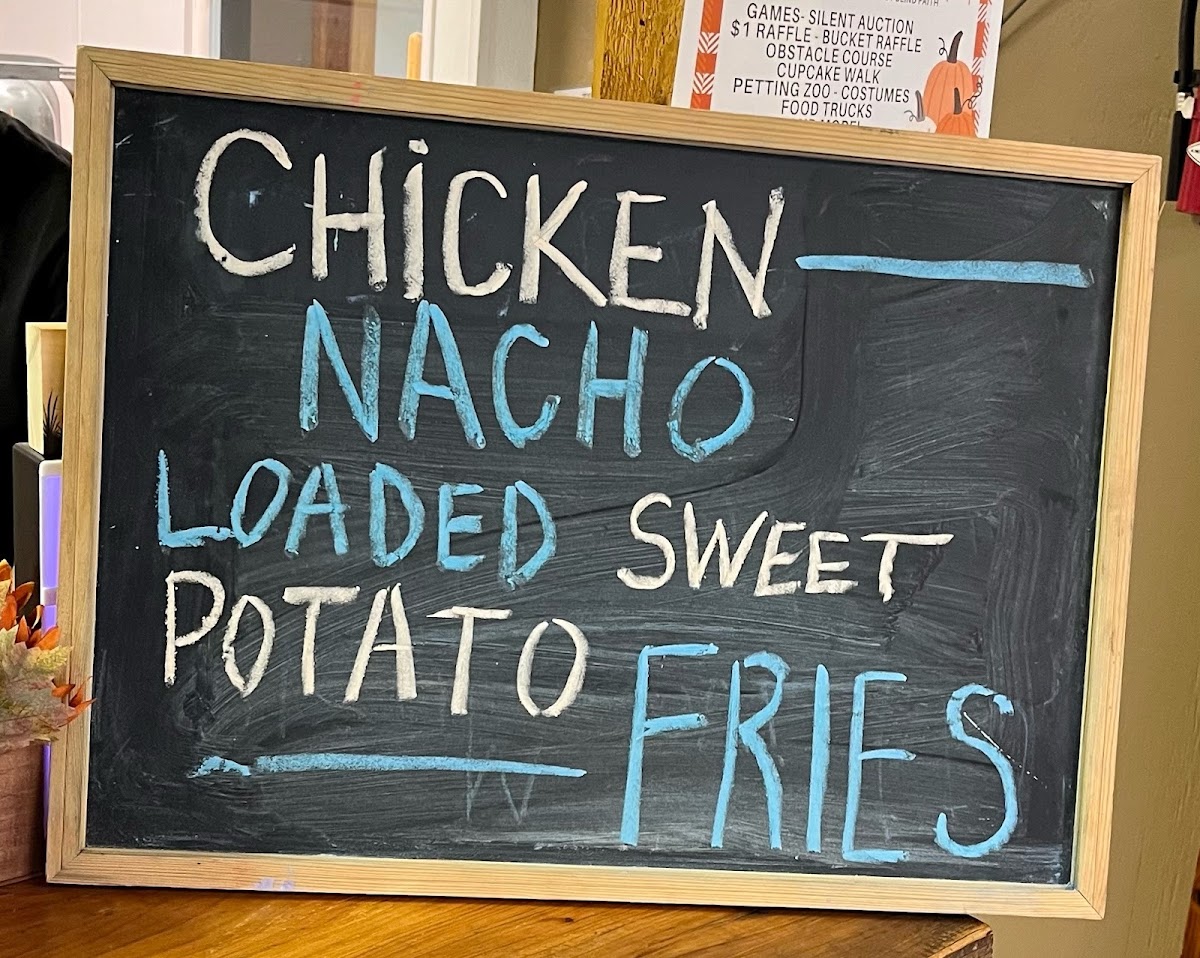 GAMES- SILENT AUCTION
$1 RAFFLE - BUCKET RAFFLE
OBSTACLE COURSE
CUPCAKE WALK
PETTING ZOO - COSTUMES
FOOD TRUCKS
CHiCKEN
NACHO
LOADED SWEET
POTATO FRIES